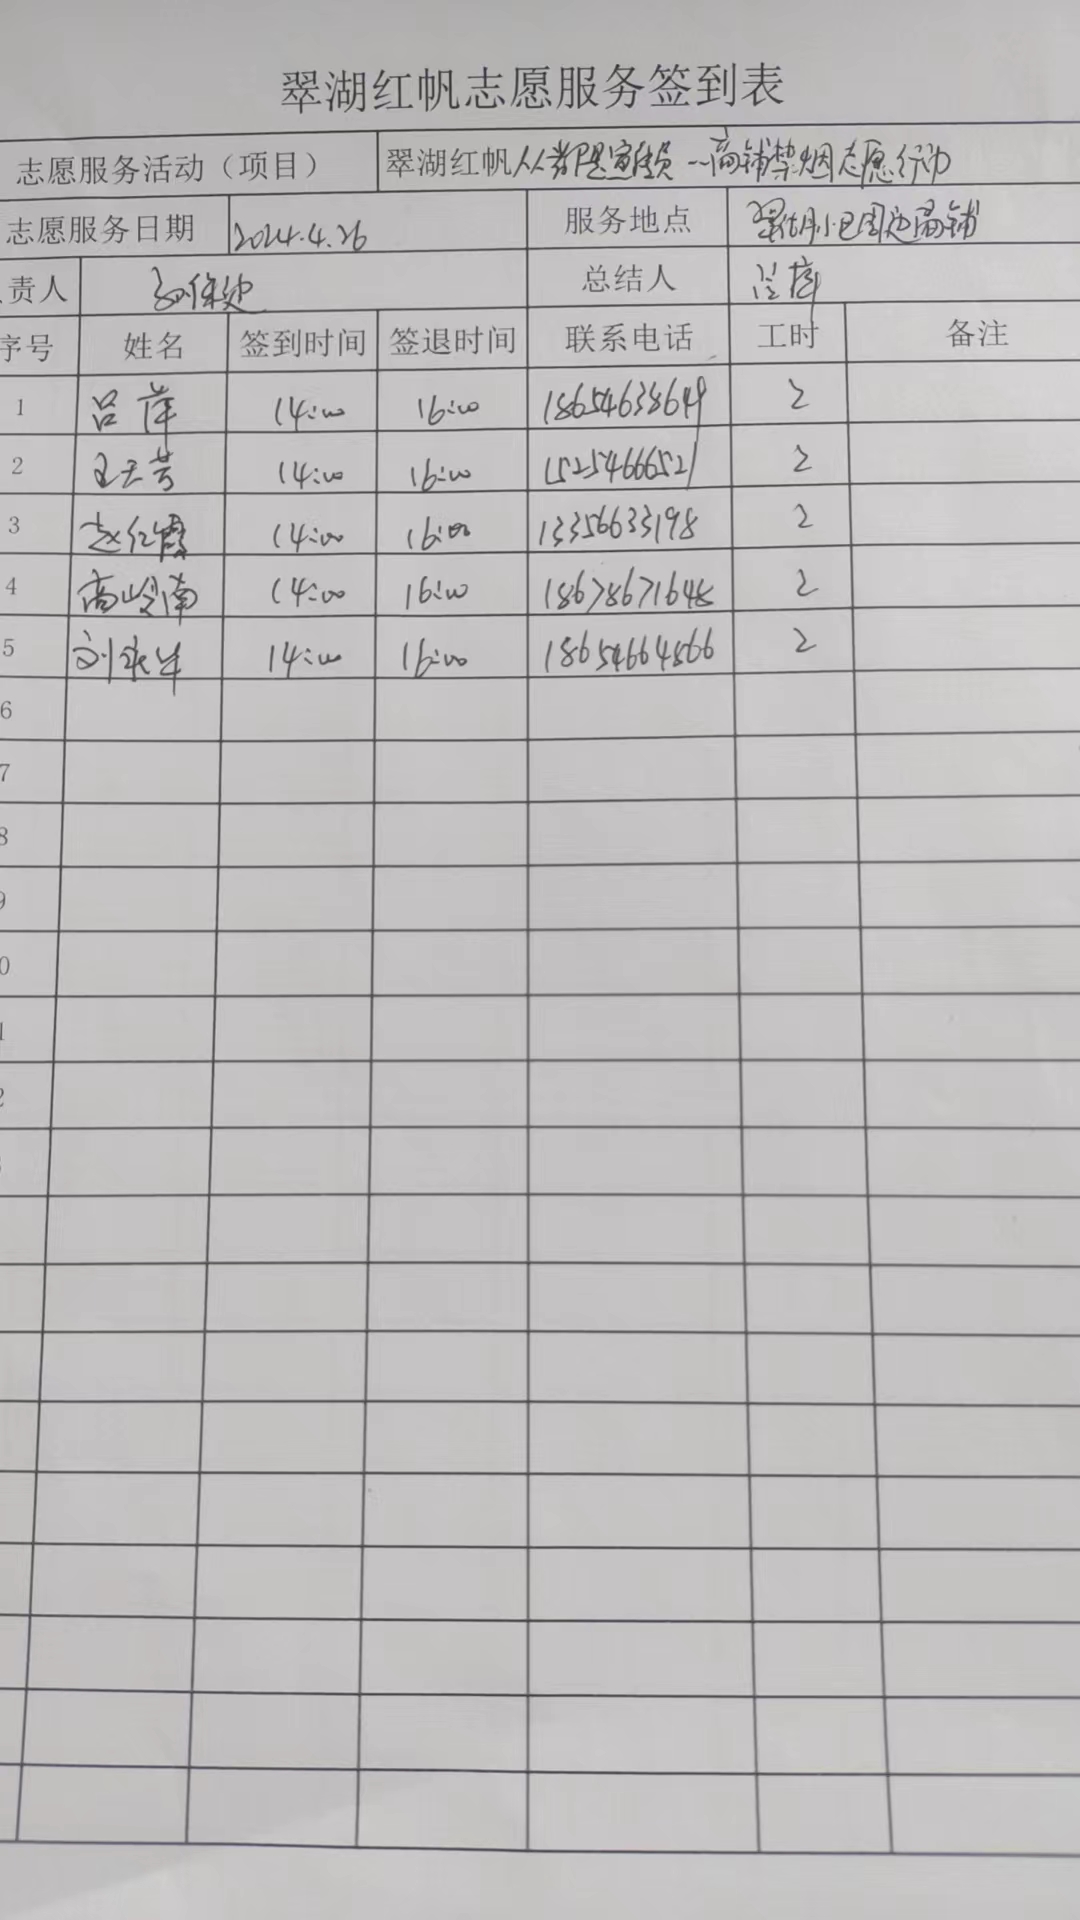 翠湖红帆志愿服务签到表
志愿服务活动（项目） 翠湖红帆人人都是宣传员——商铺禁烟志愿行动
志愿服务日期 2024.4.26 服务地点 翠湖小区周边商铺
责人 总结人 吕萍
序号 姓名 签到时间 签退时间 联系电话 工时 备注
1 吕萍 14:00 16:00 18654638649 2
2 14:00 16:00 15254666521 2
3 赵红霞 14:00 16:00 13356633198 2
4 高岭南 14:00 16:00 18678671648 2
5 14:00 16:00 18654664566 2
6
7
8
9
0
1
2